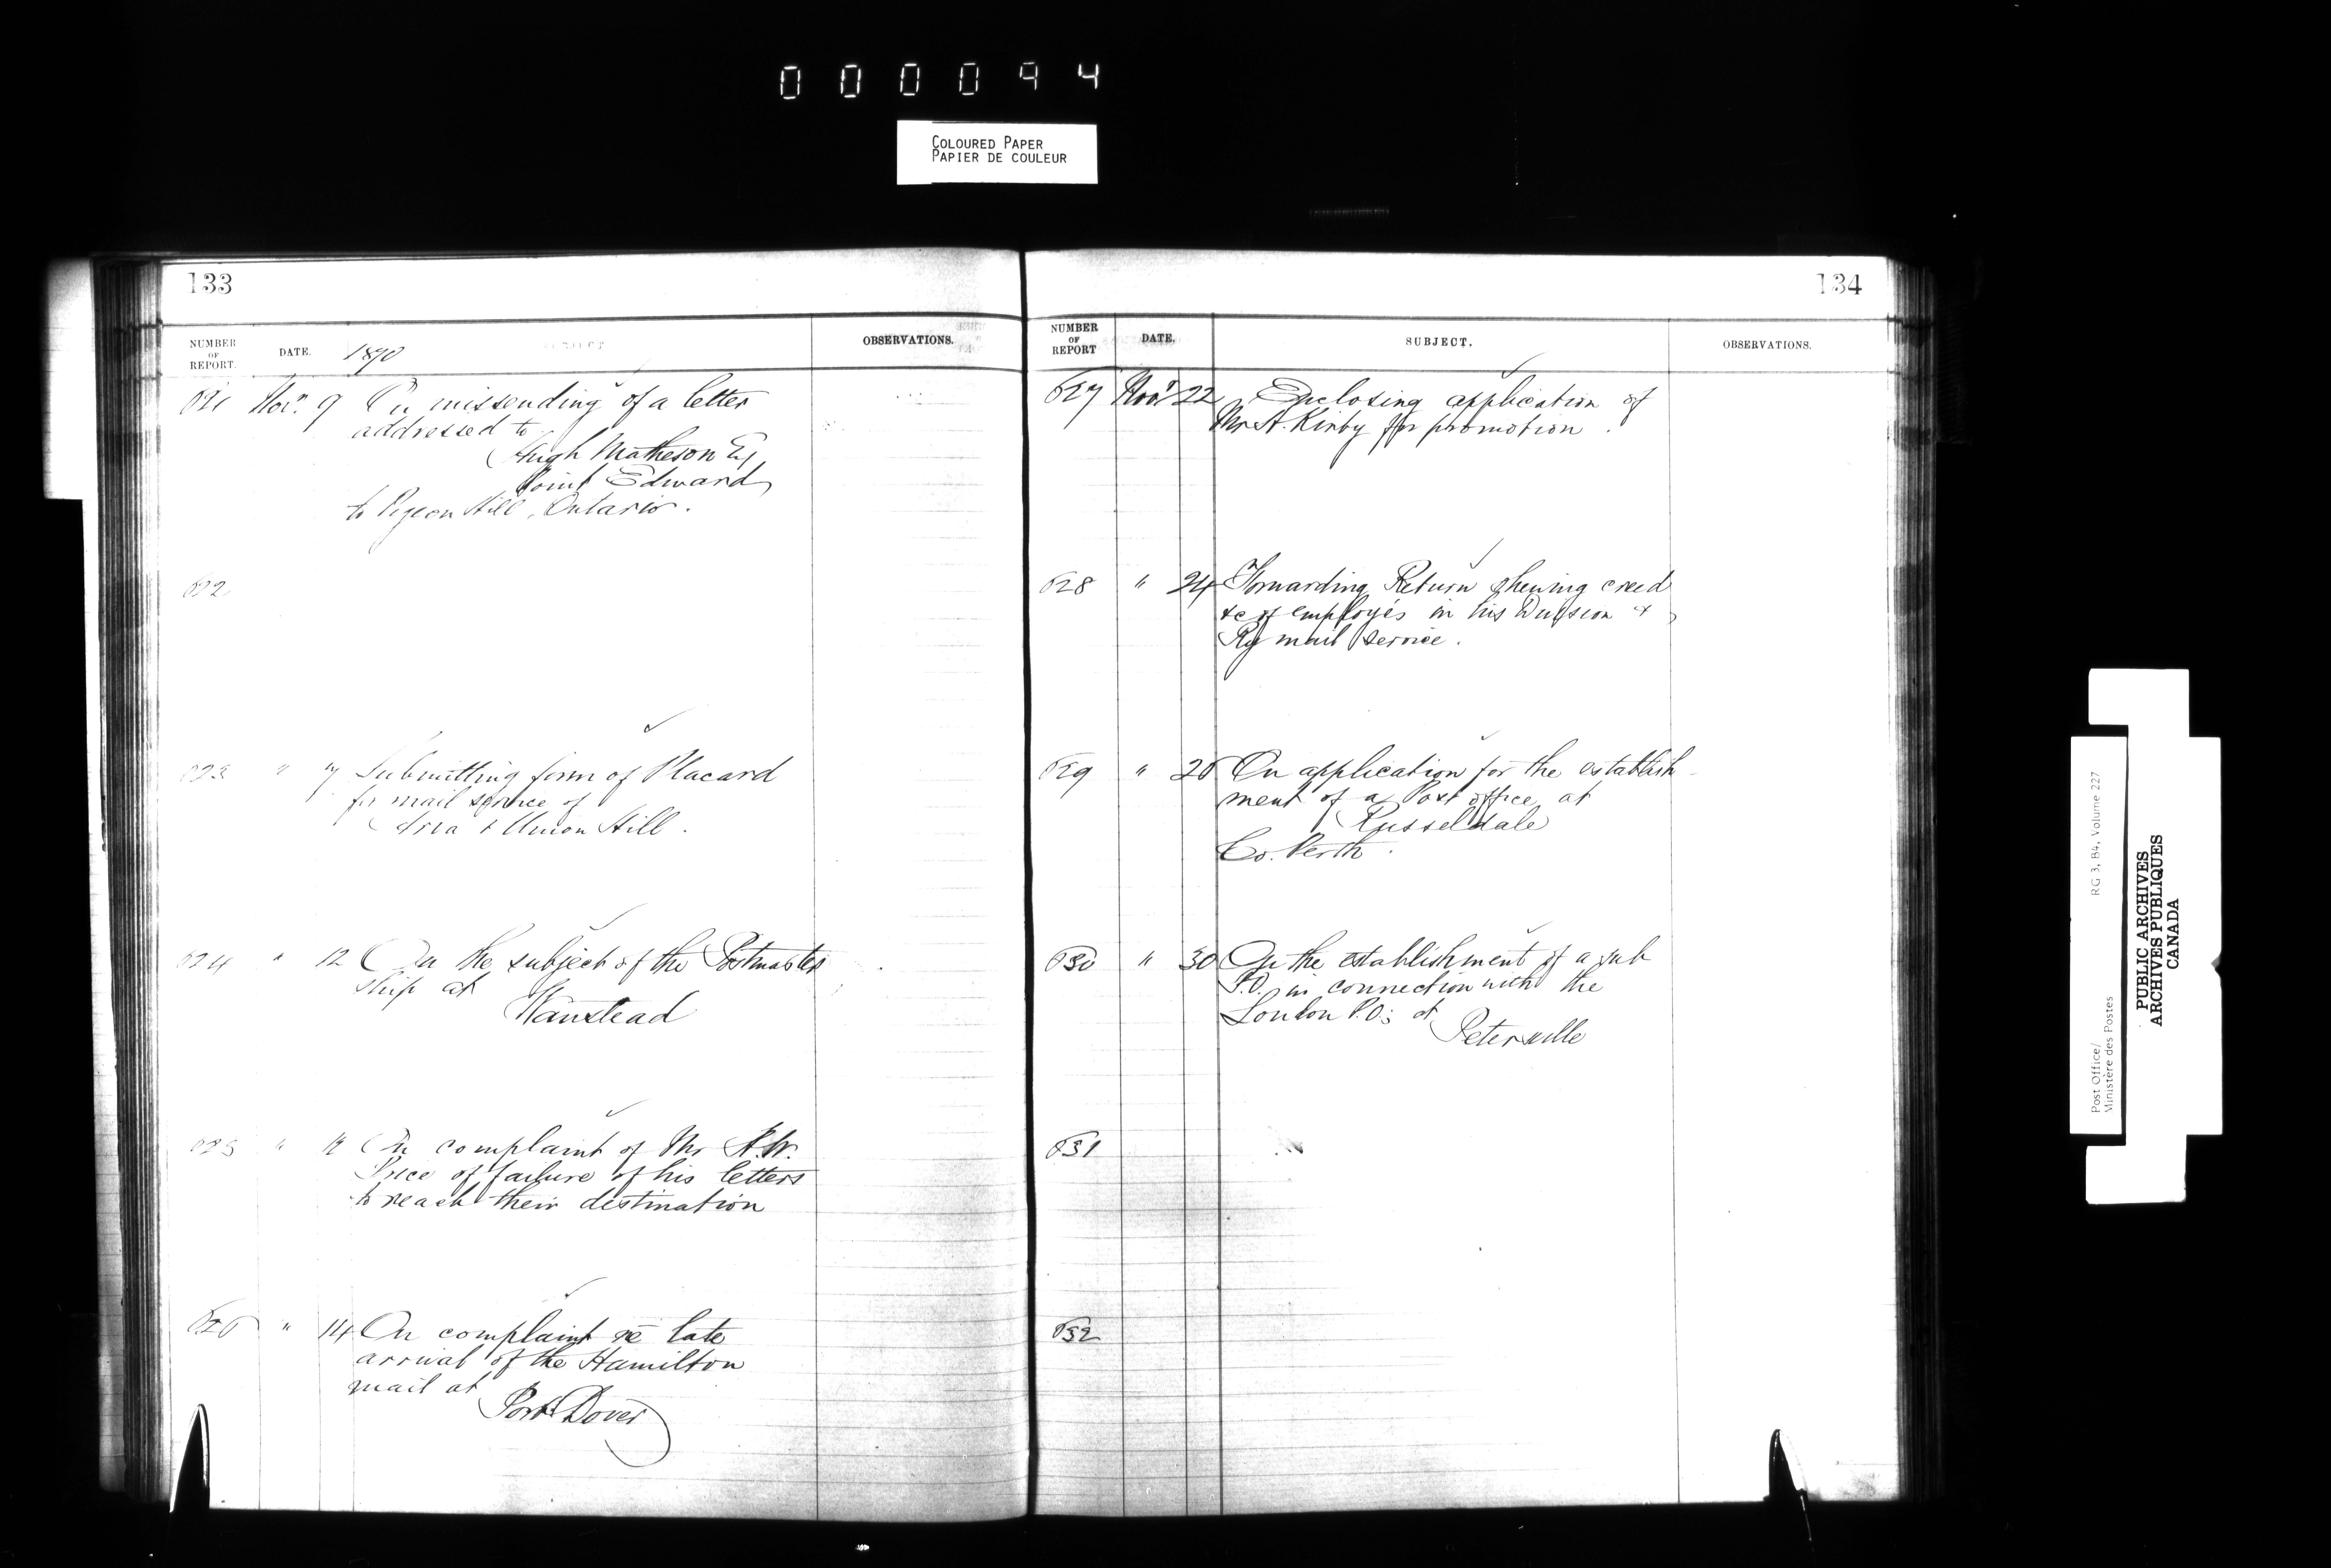 000094
COLOURED PAPER
PAPIER DE COULEUR
133
NUMBER OF REPORT. DATE. 1890 SUBJECT OBSERVATIONS.
621 Novr. 9 On missending of a letter
addressed to
Hugh Matheson Esq
Point Edward
to Pigeon Hill, Ontario.
622
623 " " Submitting form of Placard
for mail service of
& Union Hill.
624 " 12 On the subject of the Postmaster
ship at
Wanstead
625 " On complaint of Mr
Price of failure of his letters
to reach their destination
626 " 14 On complaint re late
arrival of the Hamilton
mail at
Port Dover
134
NUMBER OF REPORT DATE. SUBJECT. OBSERVATIONS.
627 Novr 22 Enclosing application of
Mr A. Kirby for promotion.
628 " 24 Forwarding Return shewing creed
&c of employés in his Division &
Ry mail service.
629 " On application for the establish-
ment of a Post office at
Russeldale
Co. Perth.
630 " 30 On the establishment of a sub
P.O. in connection with the
London P.O; at
Peterville
631
632
Post Office/ RG 3, B4, Volume 227
Ministère des Postes
PUBLIC ARCHIVES
ARCHIVES PUBLIQUES
CANADA